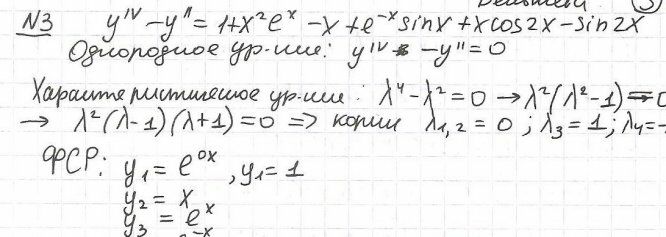 N3 y^IV - y'' = 1 + x²e^x - x + e^-x sinx + x cos2x - sin2x
Однородное ур-ние: y^IV - y'' = 0
Характеристическое ур-ние: λ⁴ - λ² = 0 → λ²(λ² - 1) = 0
→ λ²(λ-1)(λ+1) = 0 => корни λ1,2 = 0 ; λ3 = 1 ; λ4 = -
ФСР: y1 = e^0x , y1 = 1
y2 = x
y3 = e^x
e^-x